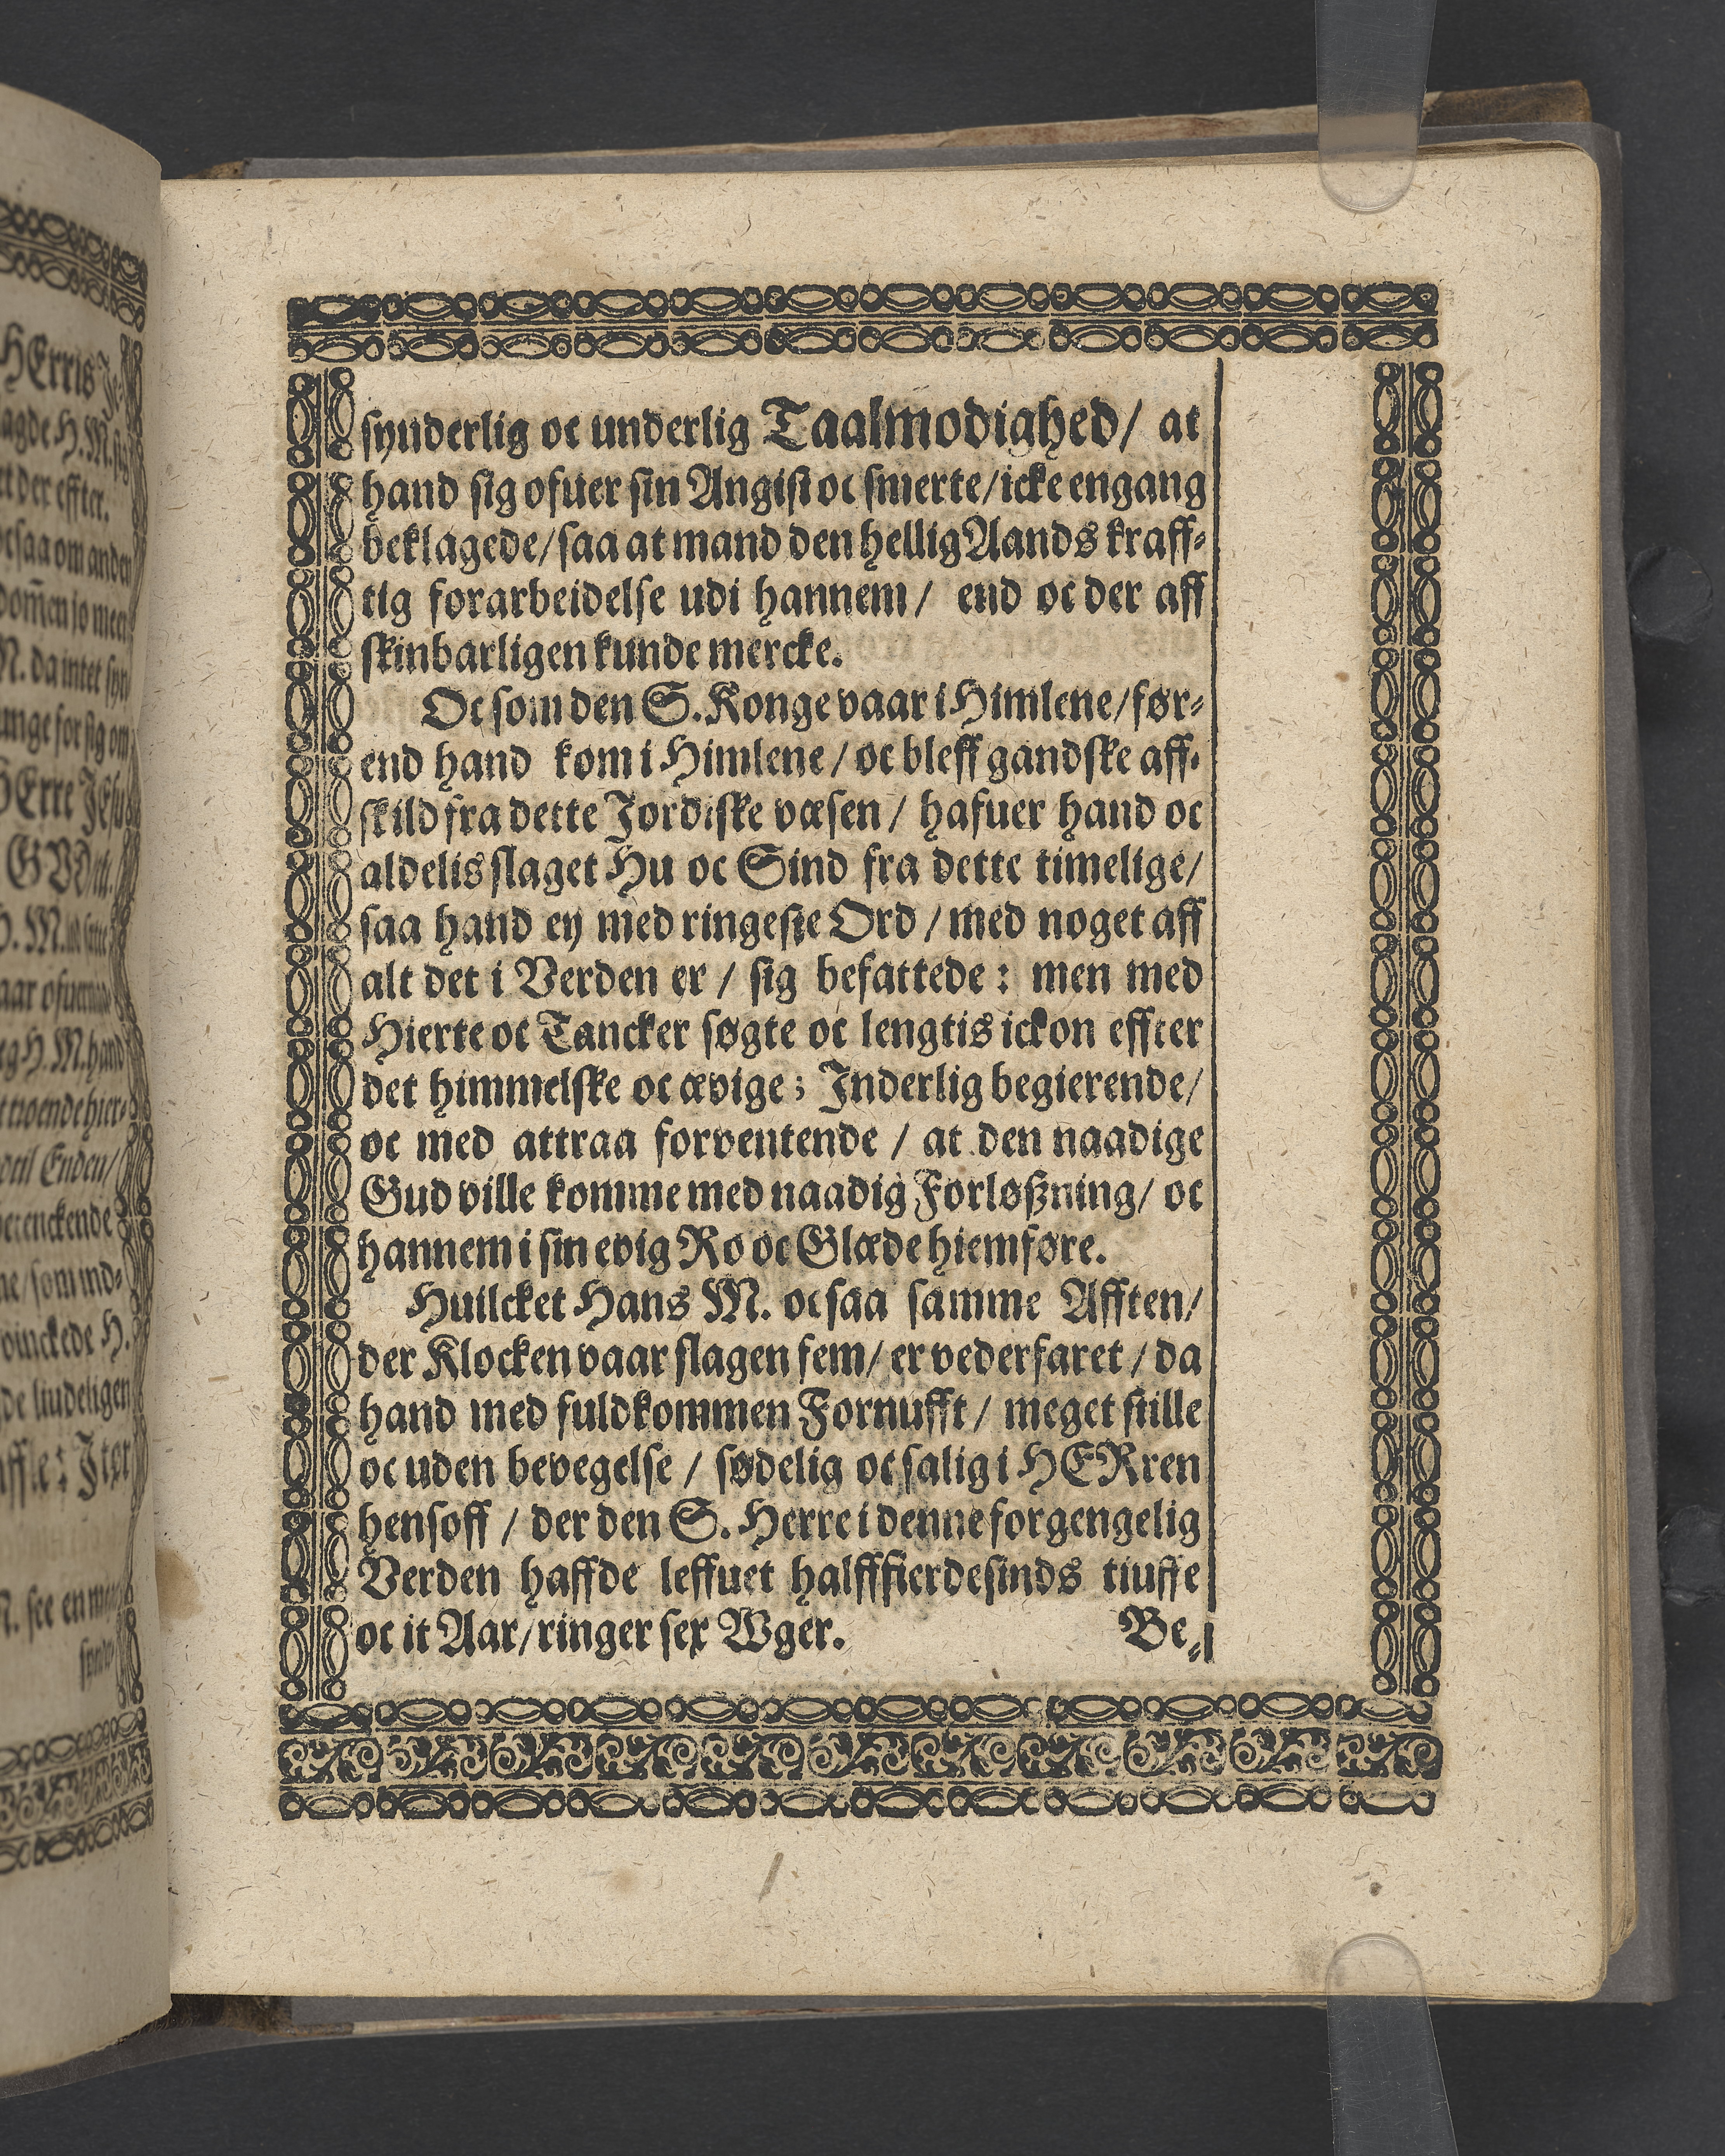 HErris Je-
agde H. M. sig
et der effter.
ocsaa om anden
dom̃en jo meer
N. da intet syn
unge for sig om
HErre JEsu
GVD
H. M.
aar ofuer
eg H. M. hand
t troendehier-
vtil Enden/
betenckende
ne/som ind-
vinckede H.
de liudeligen
aff.e: Jter
N. see en
synder
synderlig oc underlig Taalmodighed/ at
hand sig ofuer sin Angist oc smerte/icke engang
beklagede/saa at mand den hellig Aands kraff-
tig forarbeidelse udi hannem/ end oc der aff
skinbarligen kunde mercke.
Oc som den S. Konge vaar i Himlene/før-
end hand kom i Himlene/oc bleff gandske aff-
skild fra dette Jordiske væsen/ hafuer hand oc
aldelis slaget Hu oc Sind fra dette timelige/
saa hand ey med ringeste Ord/med noget aff
alt det i Verden er/ sig befattede: men med
Hierte oc Tancker søgte oc lengtis ickon effter
det himmelske oc ævige; Inderlig begierende/
oc med attraa forventende/ at den naadige
Gud ville komme med naadig Forløßning/ oc
hannem i sin evig Ro oc Glæde hiemføre.
Huilcket Hans M. ocsaa samme Afften/
der Klocken vaar slagen fem/er vederfaret/da
hand med fuldkommen Fornufft/ meget stille
oc uden bevegelse/ sødelig oc salig i HERren
hensoff/ der den S. Herre i denne forgengelig
Verden haffde leffuet halfffierdesinds tiuffe
oc it Aar/ringer sex Wger.
Be-